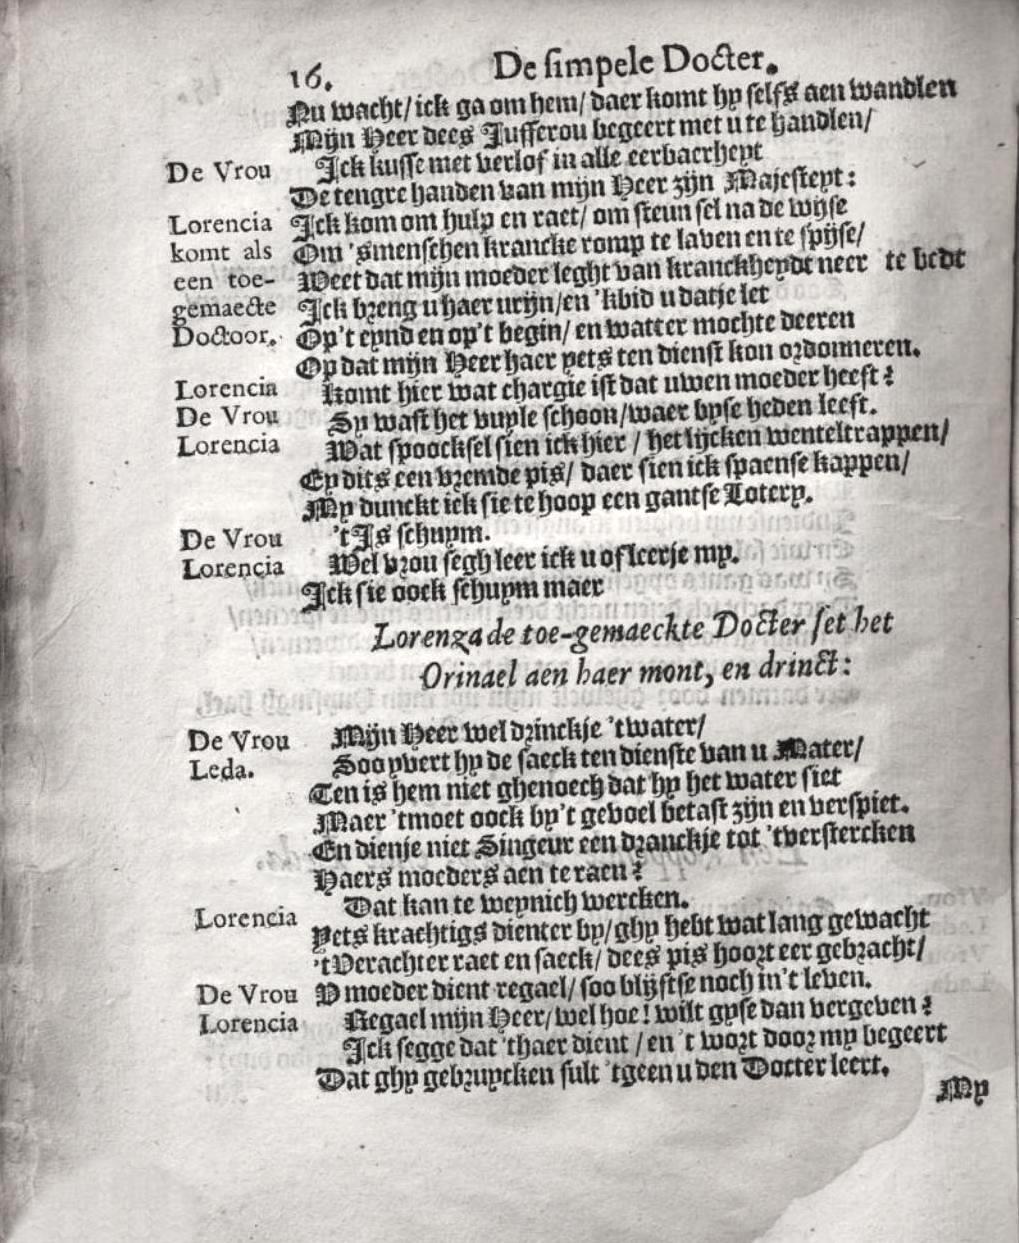 16. De simpele Docter.
Nu wacht/ ick ga om hem/ daer komt hy selfs aen wandlen
Mijn Heer dees Jufferou begeert met u te handlen/
De Vrou Ick kusse met verlof in alle eerbaerheyt
De tengre handen van mijn Heer zijn Majesteyt:
Lorencia Ick kom om hulp en raet/ om steunsel na de wijse
komt als Om 'smenschen krancke romp te laven en te spijse/
een toe- Weet dat mijn moeder leght van kranckheydt neer te bedt
gemaecte Ick breng u haer urijn/ en 'k bid u datje let
Doctoor. Op't eynd en op't begin/ en watter mochte deeren
Op dat mijn Heer haer yets ten dienst kon ordonneren.
Lorencia Komt hier wat chargie ist dat uwen moeder heeft?
De Vrou Sy wast het vuyle schoon/ waer byse heden leeft.
Lorencia Wat spoocksel sien ick hier / het lijcken wenteltrappen/
Ey dits een vremde pis/ daer sien ick spaense kappen/
My dunckt ick sie te hoop een gantse Lotery.
De Vrou 't Is schuym.
Lorencia Wel vrou segh leer ick u of leerje my.
Ick sie oock schuym maer
Lorenza de toe-gemaeckte Docter set het
Orinael aen haer mont, en drinct:
De Vrou Mijn Heer wel drinckje 't water/
Leda. Soo yvert hy de saeck ten dienste van u Mater/
Ten is hem niet ghenoech dat hy het water siet
Maer 'tmoet oock by't gevoel betast zijn en verspiet.
En dienje niet Singeur een dranckje tot 'tversterckèn
Haers moeders aen te raen?
Lorencia Dat kan te weynich wercken.
Yets krachtigs dienter by/ ghy hebt wat lang gewacht
't Verachter raet en saeck/ dees pis hoort eer gebracht/
De Vrou V moeder dient regael/ soo blijftse noch in't leven.
Lorencia Regael mijn Heer/ wel hoe! wilt gyse dan vergeven?
Ick segge dat 'thaer dient / en 't wort door my begeert
Dat ghy gebruycken sult 'tgeen u den Docter leert.
My